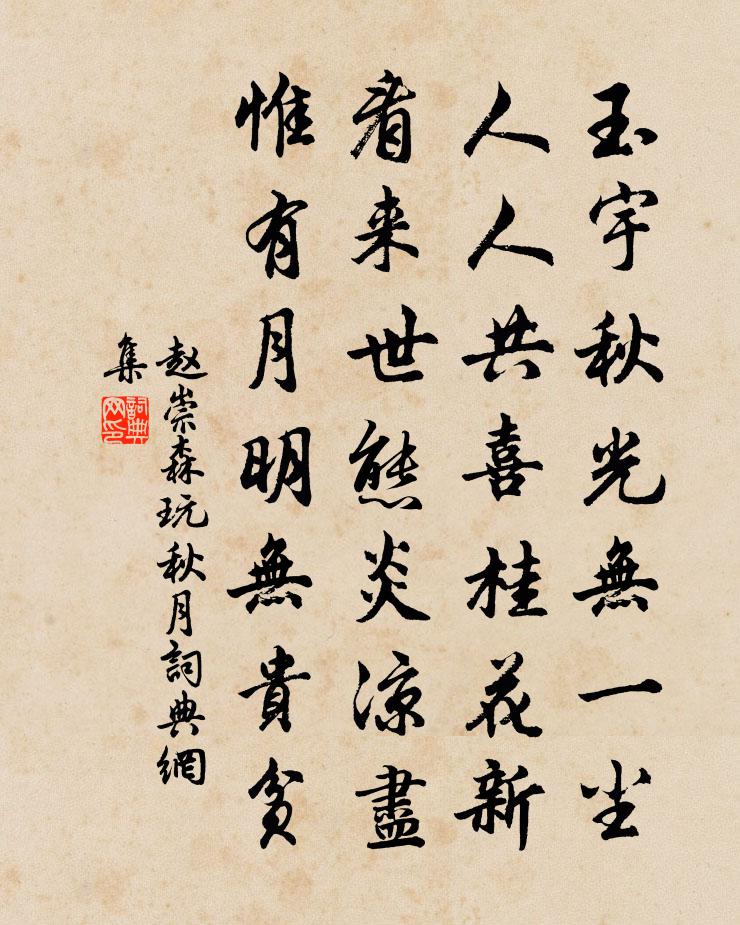 玉宇秋光無一尘
人人共喜桂花新
看来世態炎凉盡
惟有月明無貴貧
赵崇森玩秋月詞典網
集
詞典
网印